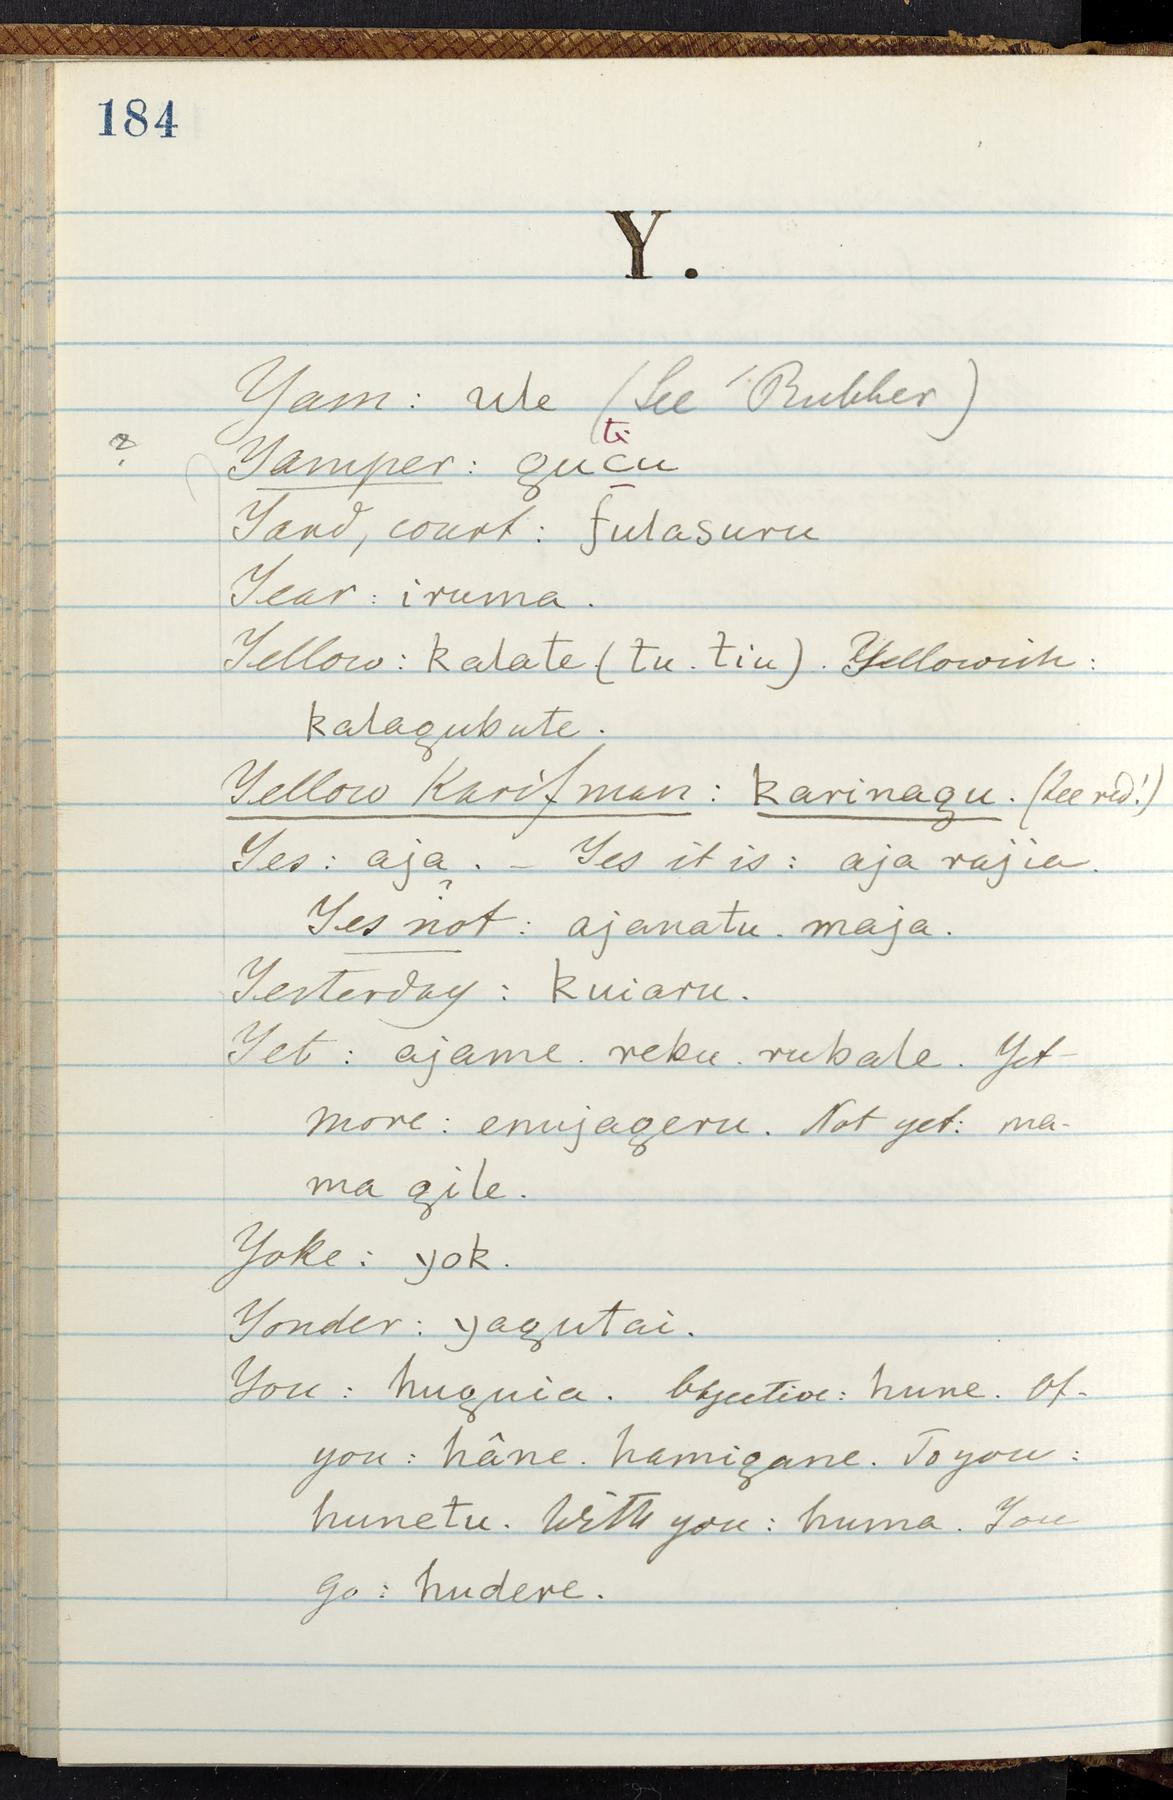 184
Y.
Yam: ule (See 'Rubber)
ti
? Yamper: gucu
Yard, court: fulasuru
Year: iruma.
Yellow: kalate (tu. tiu). Yellowish:
kalagubute.
Yellow Karifman: karinagu. (See red!)
Yes: aja. – Yes it is: aja rajia.
?
Yes not: ajanatu. maja.
Yesterday: kuiaru.
Yet: ajame. reku. rubale. Yet
more: enujageru. Not yet: ma-
ma gile.
Yoke: yok.
Yonder: yagutai.
You: huguia. Objective: hune. Of-
you: hâne. hamigane. To you:
hunetu. With you: huma. You
go: hudere.